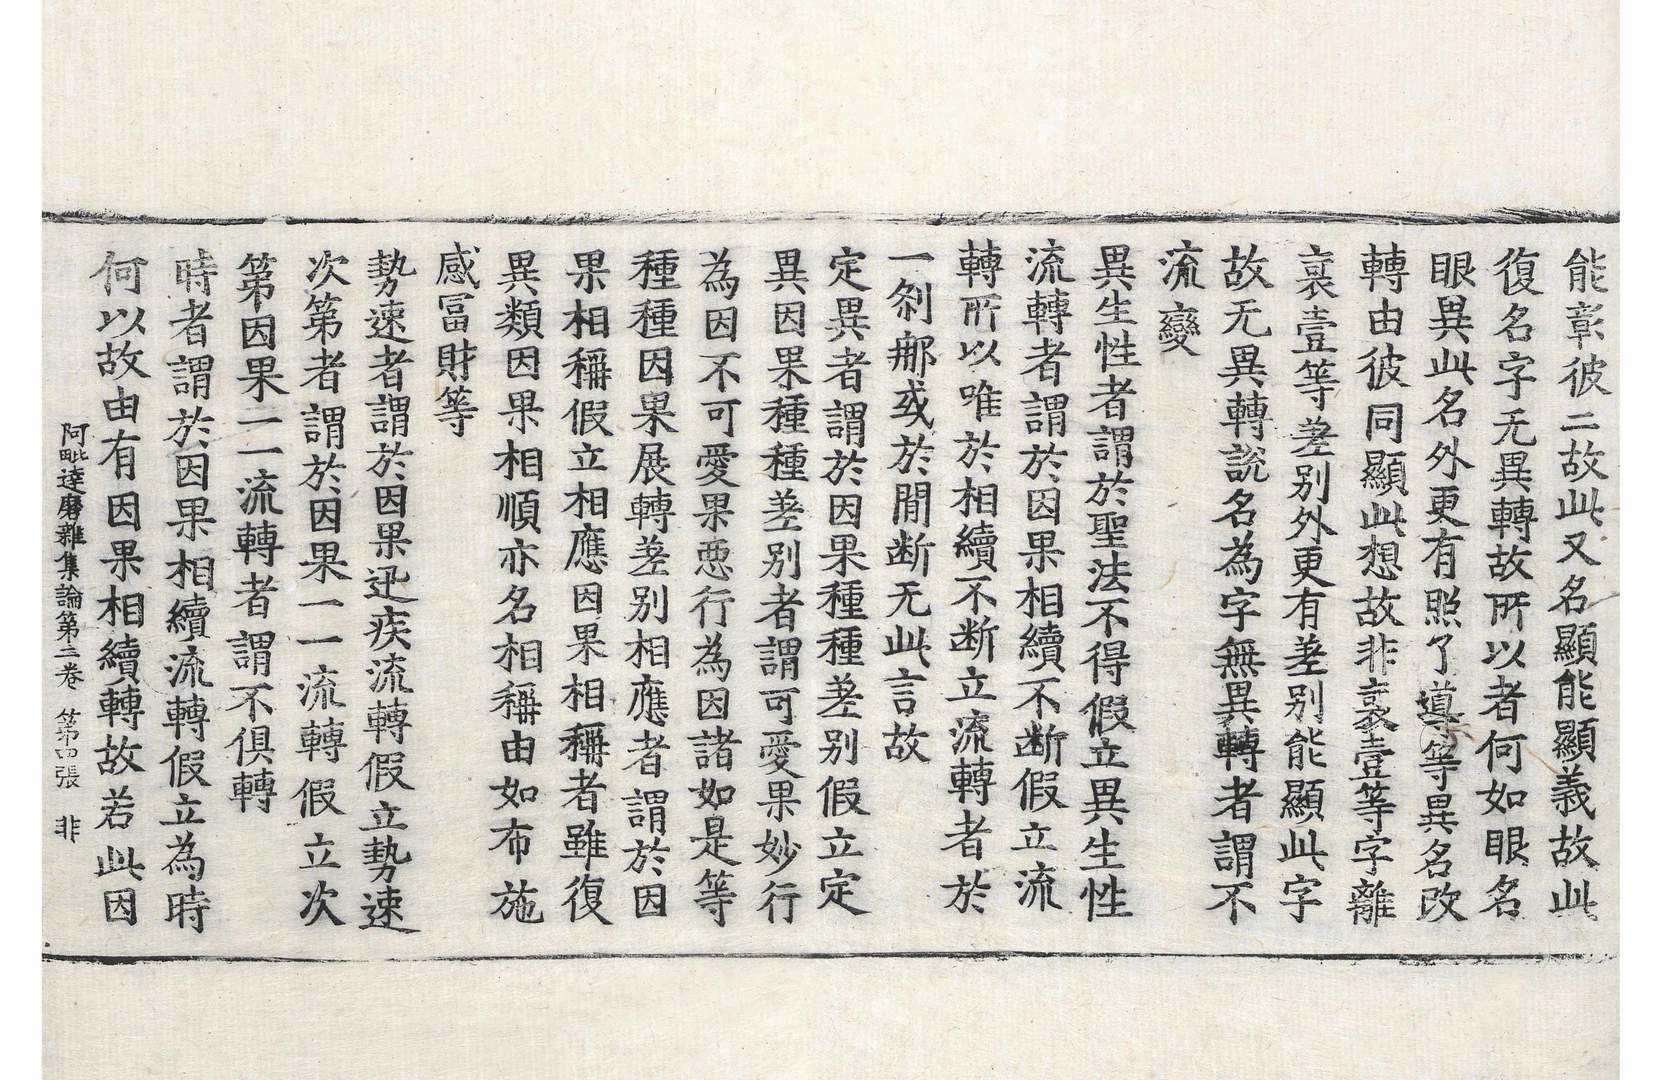 能彰彼二故此又名顯能顯義故此
復名字无異轉故所以者何如眼名
眼異此名外更有照了導等異名改
轉由彼同顯此想故非裒壹等字離
裒壹等差別外更有差別能顯此字
故无異轉說名為字無異轉者謂不
流變
異生性者謂於聖法不得假立異生性
流轉者謂於因果相續不断假立流
轉所以唯於相續不断立流轉者於
一刹那或於閒断无此言故
定異者謂於因果種種差別假立定
異因果種種差別者謂可愛果妙行
為因不可愛果惡行為因諸如是等
種種因果展轉差別相應者謂於因
果相稱假立相應因果相稱者雖復
異類因果相順亦名相稱由如布施
感冨財等
勢速者謂於因果迅疾流轉假立勢速
次第者謂於因果一一流轉假立次
第因果一一流轉者謂不俱轉
時者謂於因果相續流轉假立為時
何以故由有因果相續轉故若此因
阿毗達磨雜集論第二卷 第四張 非